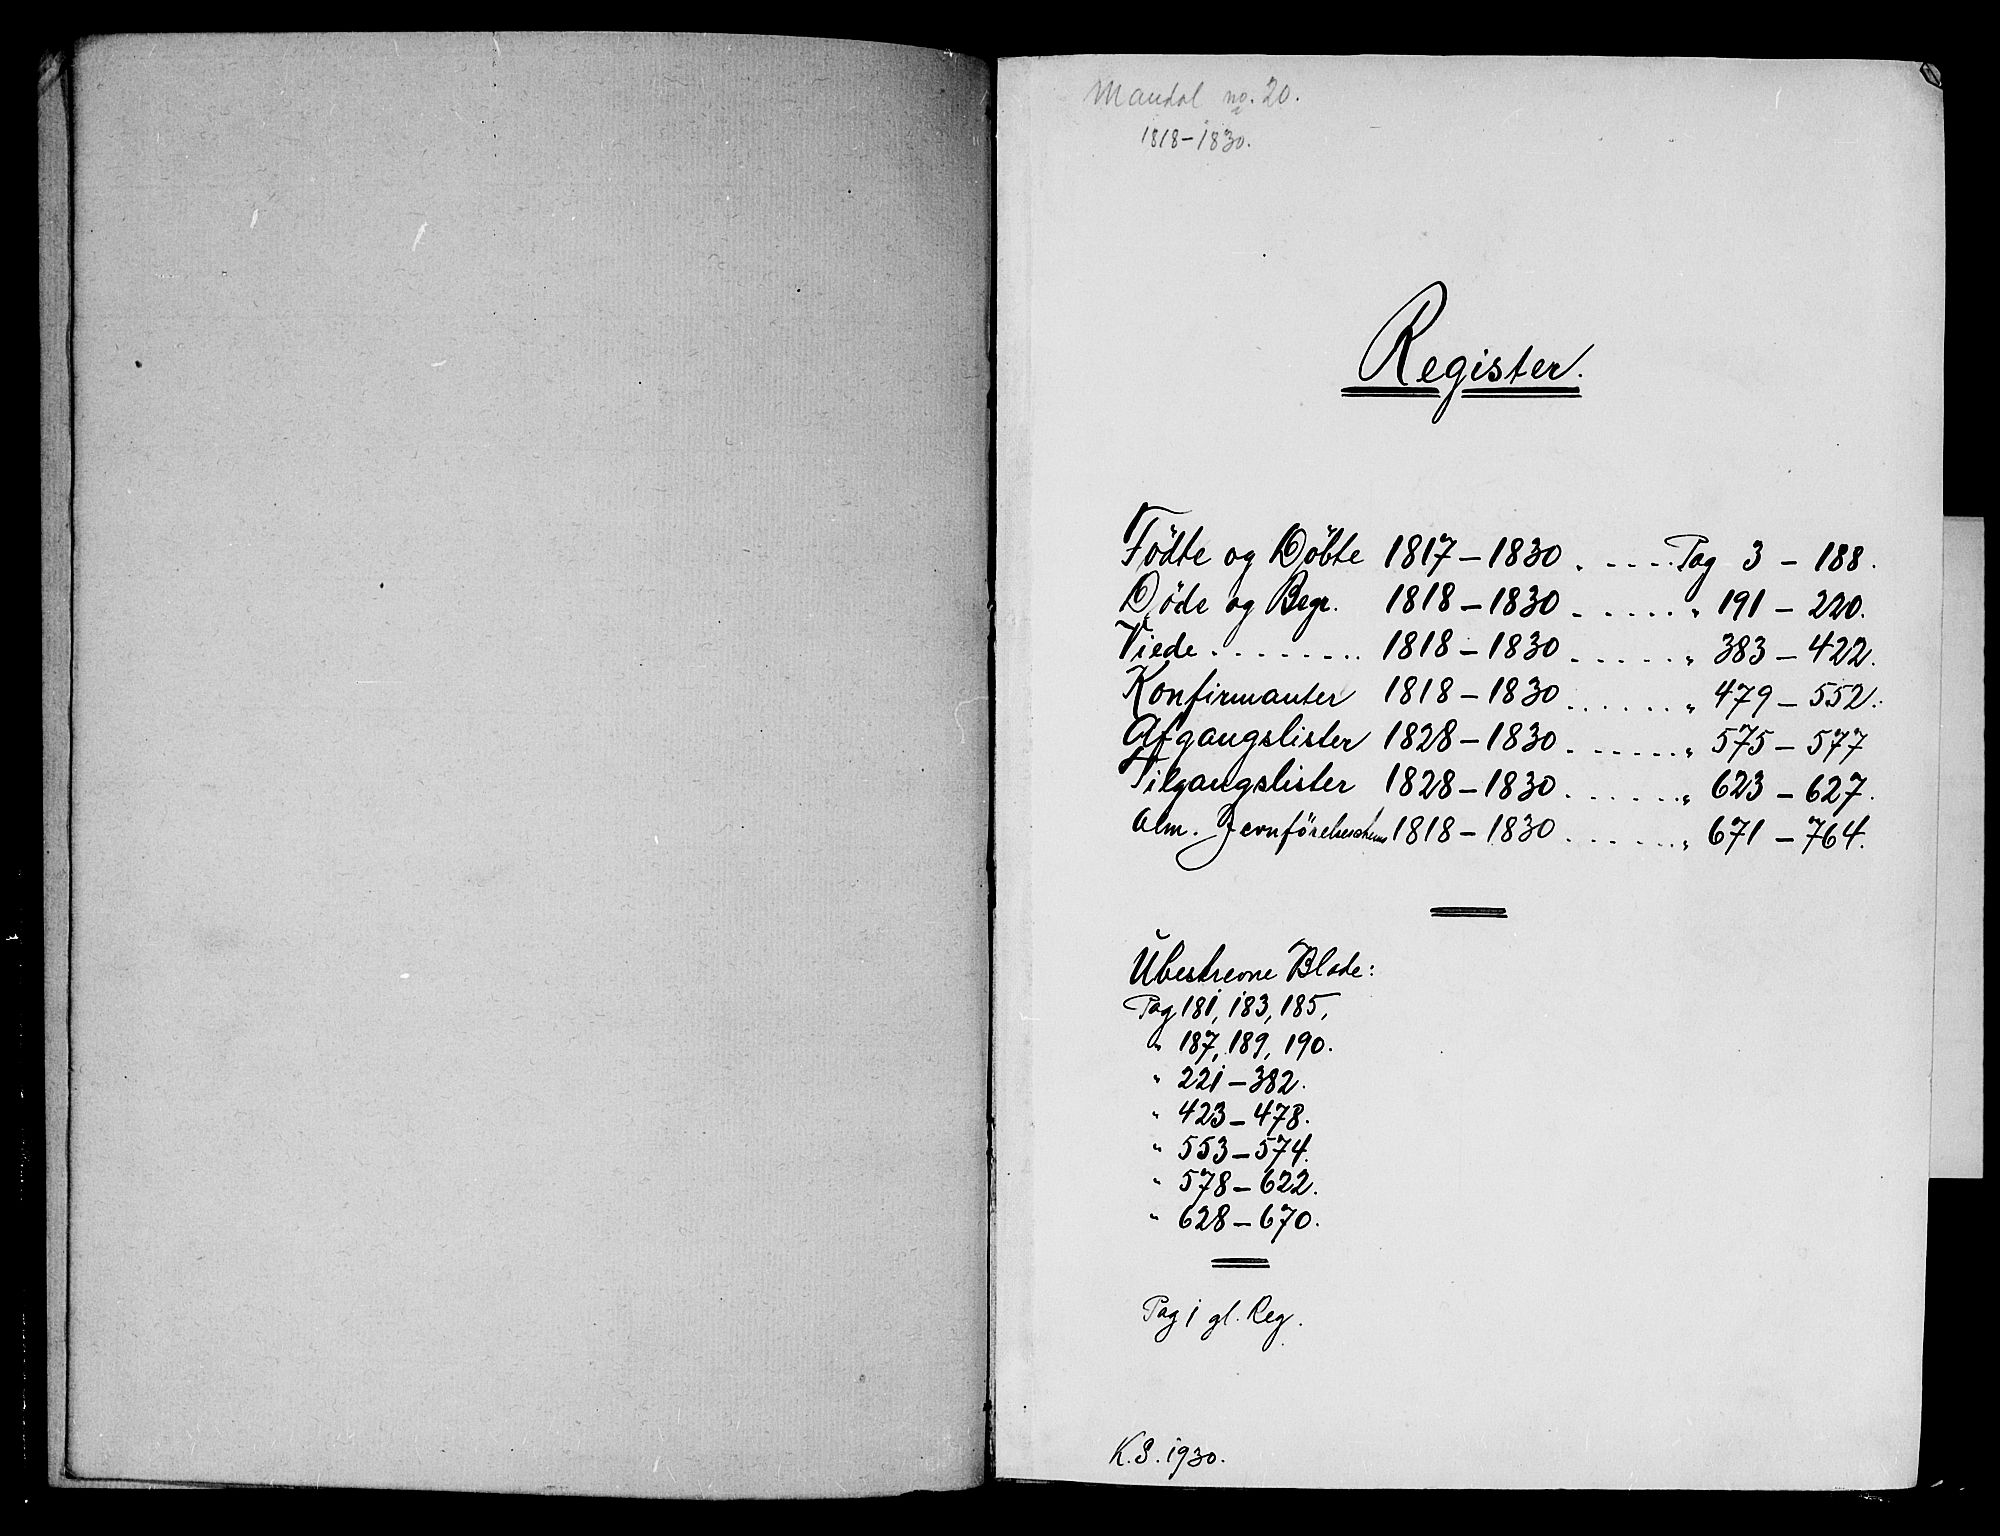 Mandal no. 20.
1818-1830.
Register.
Födte og Döbte 1817 - 1830 . - - - - . Pag 3 - 188.
Döde og Begr. 1818 - 1830 - - - - - . " 191 - 220.
Viede . - - - - - - . . 1818 - 1830 - - - - - . " 383 - 422.
Konfirmanter 1818 - 1830 . . . . . . " 479 - 552.
Afgangslister 1828 - 1830 . - - - - . . " 575 - 577
Tilgangslister 1828 - 1830 . . . . . . . " 623 - 627.
Alm. Jevnförelses 1818 - 1830 . . . . . . . " 671 - 764.
Ubeskrevne Blade:
Pag 181, 183, 185,
" 187, 189, 190.
" 221 - 382.
" 423 - 478.
" 553 - 574.
" 578 - 622.
" 628 - 670.
Pag 1 gl. Reg.
K.S. 1930.